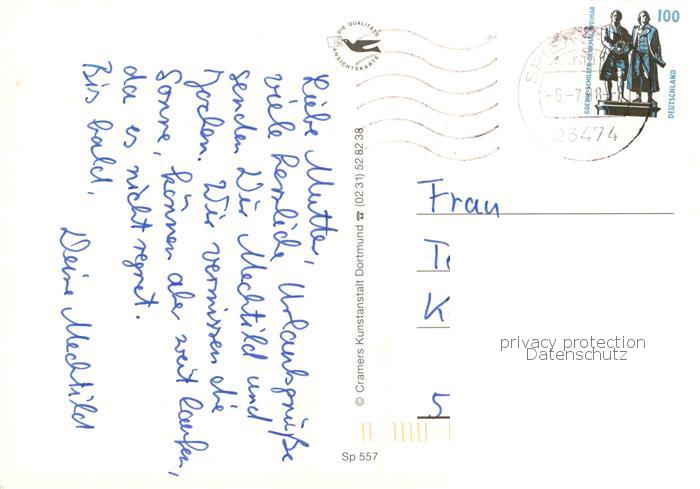 Liebe Mutter,
viele herzliche Urlaubsgrüße
senden Dir Mechtild und
Wir vermissen die
Sonne, können aber weit laufen,
da es nicht regnet.
Bis bald,
Deine Mechtild
DIE QUALITÄTS
ANSICHTSKARTE
© Cramers Kunstanstalt Dortmund ☎ (02 31) 52 82 38
Sp 557
GOETHE-SCHILLER-DENKMAL WEIMAR
100
DEUTSCHLAND
26474
Frau
K
5
privacy protection
Datenschutz